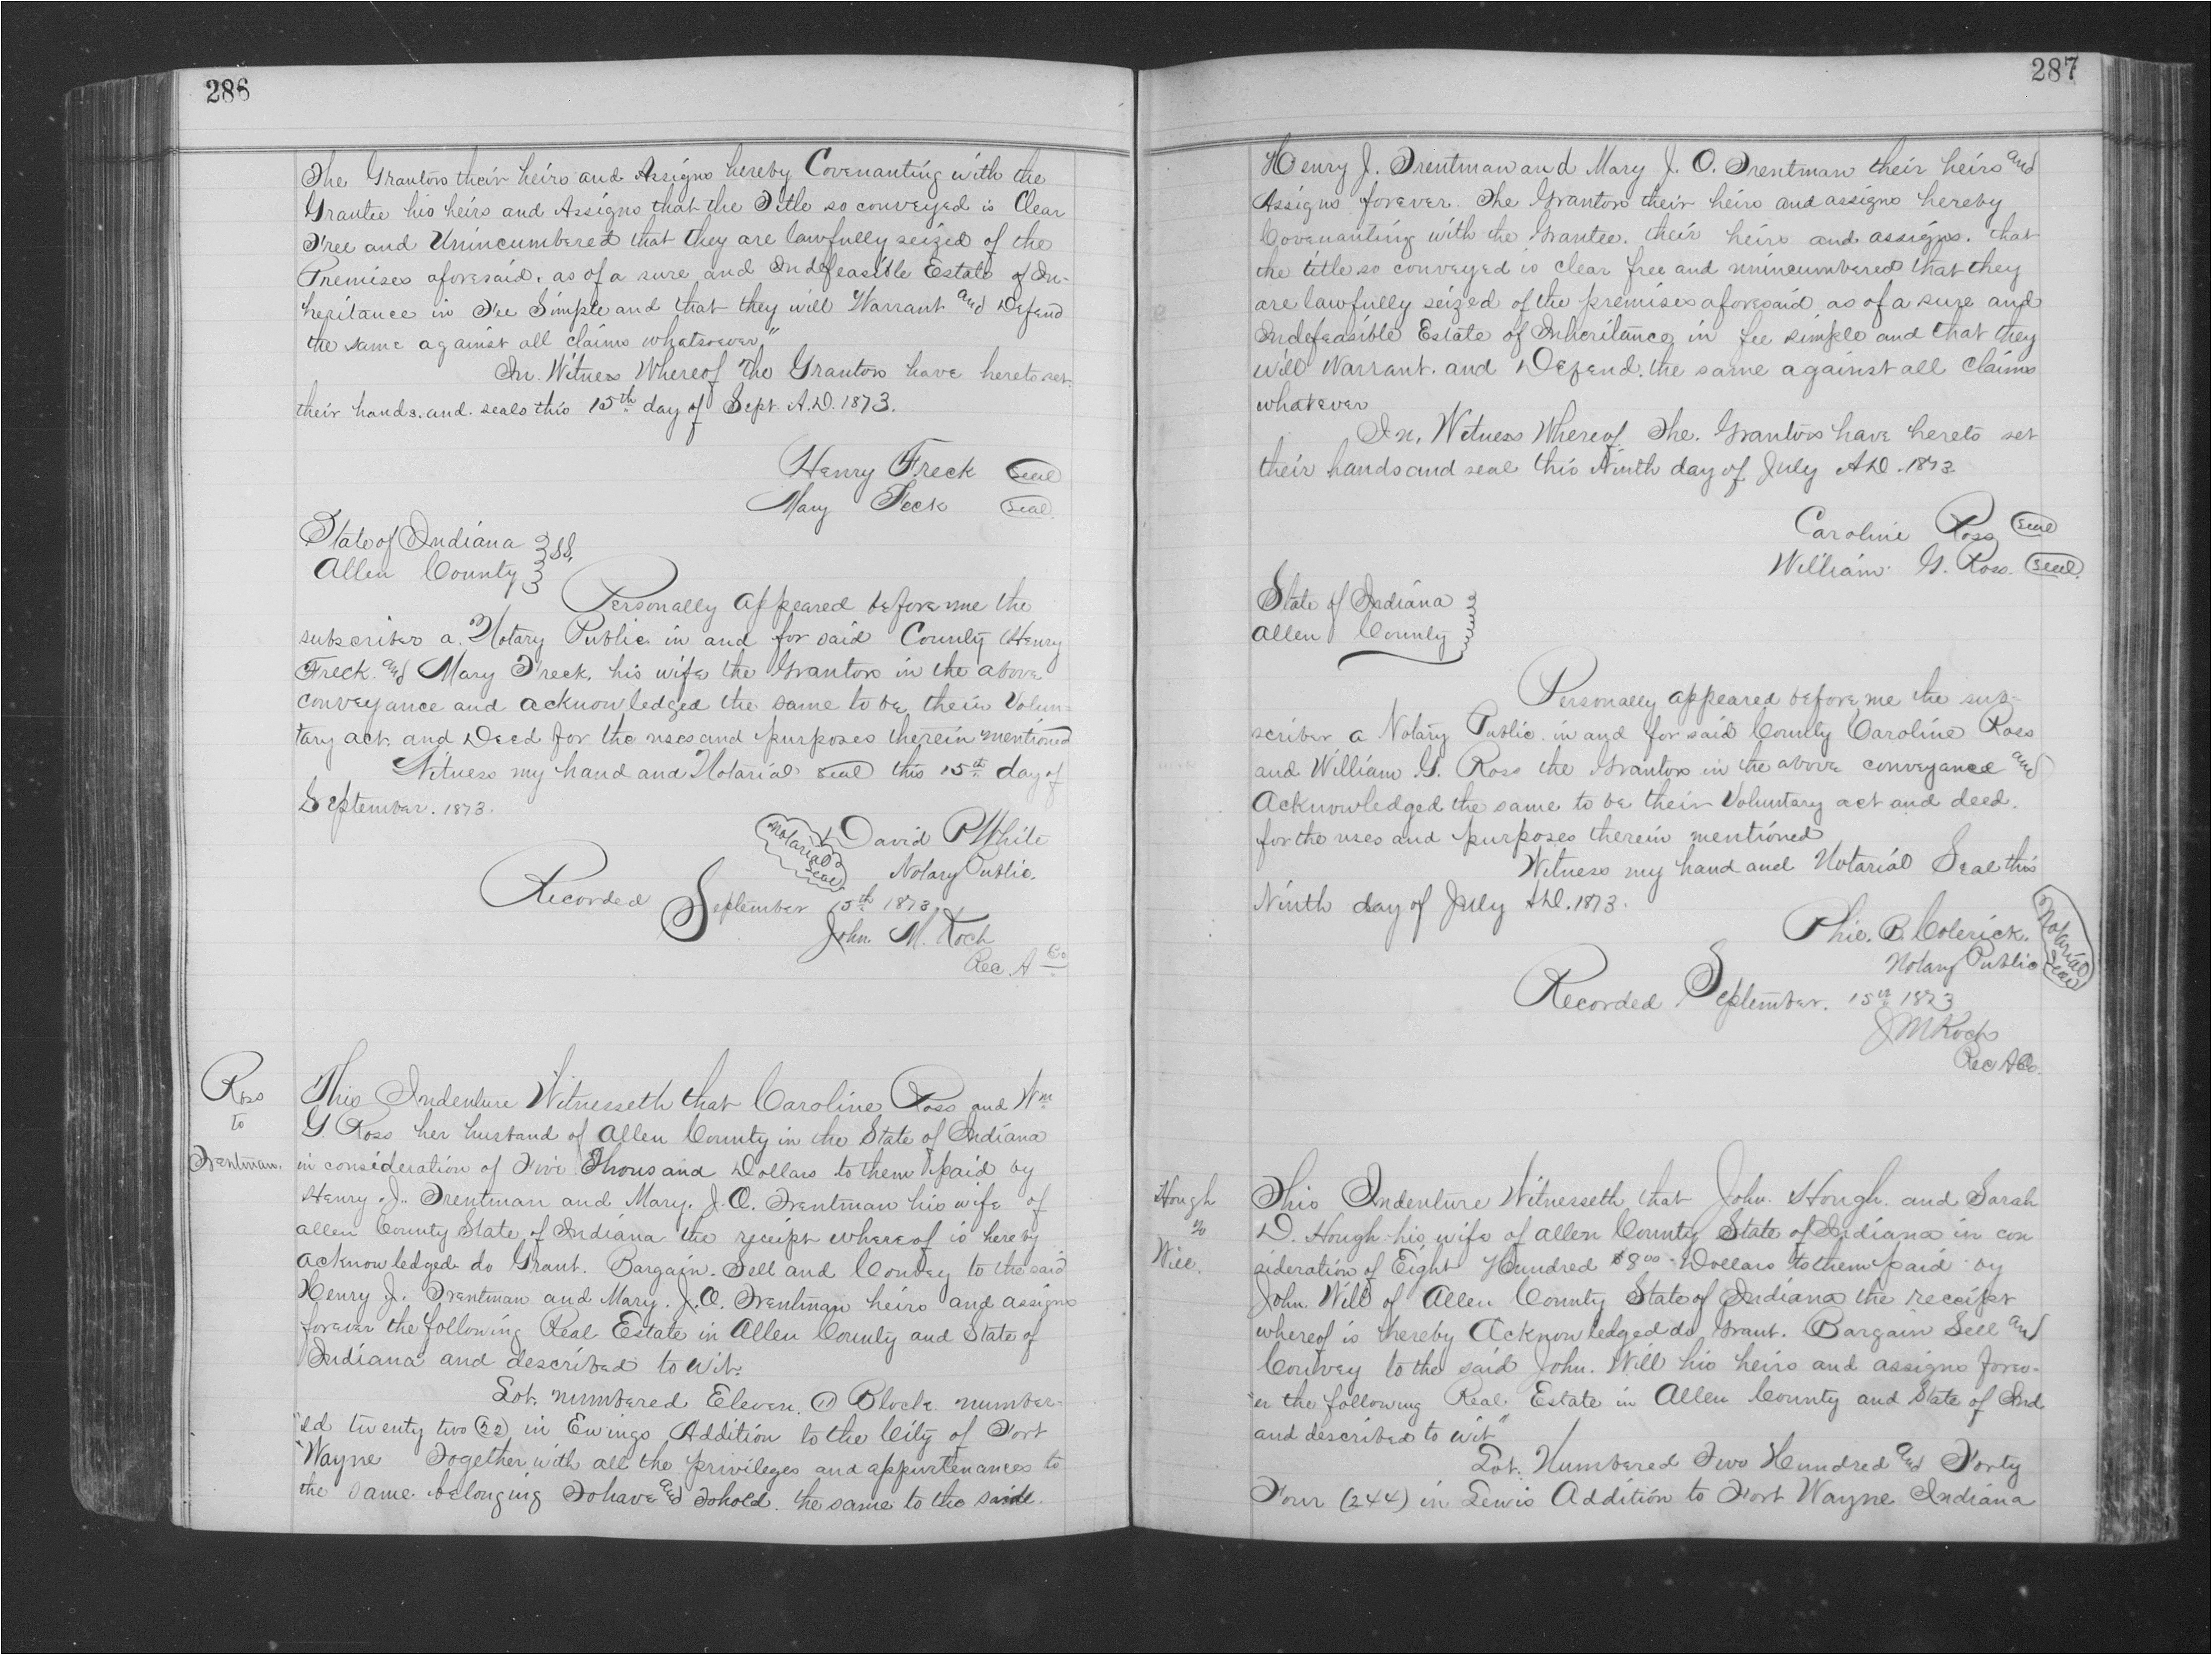 286
The Grantors their heirs and Assigns hereby Covenanting with the
Grantee his heirs and Assigns that the Title so conveyed is Clear
Free and Unincumbered that they are lawfully seized of the
Premises aforesaid. as of a sure and Indefeasible Estate of In-
heritance in Fee Simple and that they will Warrant and Defend
the same against all claims whatsoever"
In Witness Whereof The Grantors have hereto set
their hands. and seals this 15th day of Sept. A.D. 1873.
Henry Freck Seal
Mary Feck Seal
State of Indiana } SS.
Allen County }
Personally appeared before me the
subscriber a Notary Public in and for said County Henry
Freck. and Mary Freck. his wife the Grantors in the above
conveyance and acknowledged the same to be their Volun-
tary act and Deed for the uses and purposes therein mentioned
Witness my hand and Notarial seal this 15th day of
September. 1873.
Notarial Seal David P White
Notary Public.
Recorded September 15th 1873.
John. M. Koch
Rec. A Co
Ross
to
Trentman.
This Indenture Witnesseth that Caroline Ross and Wm
G. Ross her husband of Allen County in the State of Indiana
in consideration of Five Thousand Dollars to them paid by
Henry. J. Trentman and Mary. J. O. Trentman his wife of
allen County State of Indiana the receipt whereof is hereby
acknowledged do Grant. Bargain. Sell and Convey to the said
Henry J. Trentman and Mary. J. O. Trentman heirs and assigns
forever the following Real Estate in Allen County and State of
Indiana and described to wit.
Lot. numbered Eleven. 11 Block number-
"ed twenty two (22) in Ewings Addition to the City of Fort
"Wayne Together with all the privileges and appurtenances to
the same belonging To have and to hold. the same to the said.
287
Henry J. Trentman and Mary J. O. Trentman their heirs and
Assigns forever. The Grantors their heirs and assigns hereby
Covenanting with the Grantee. their heirs and assigns. that
the title so conveyed is clear free and unincumbered that they
are lawfully seized of the premises aforesaid as of a sure and
Indefeasible Estate of Inheritance in fee simple and that they
will Warrant. and Defend. the same against all Claims
whatever
In, Witness Whereof The. Grantors have hereto set
their hands and seal this Ninth day of July A.D. 1873.
Caroline Ross Seal
William G. Ross. Seal.
State of Indiana }
Allen County }
Personally appeared before me the sub=
scriber a Notary Public in and for said County Caroline Ross
and William G. Ross the Grantors in the above conveyance and
Acknowledged the same to be their Voluntary act and deed.
for the uses and purposes therein mentioned
Witness my hand and Notarial Seal this
Ninth day of July A.D. 1873.
Phil. B. Colerick.
Notary Public Notarial Seal
Recorded September. 15th 1873
J M Koch
Rec A Co.
Hough
to
Will.
This Indenture Witnesseth that John. Hough. and Sarah
D. Hough his wife of allen County State of Indiana in con
sideration of Eight Hundred $800 Dollars to them paid by
John. Will of Allen County State of Indiana the receipt
whereof is thereby Acknowledged do Grant. Bargain Sell and
Convey to the said John. Will his heirs and assigns forev-
"er the following Real Estate in Allen County and State of Ind
and described to wit"
Lot. Numbered Two Hundred and Forty
Four (244) in Lewis Addition to Fort Wayne Indiana